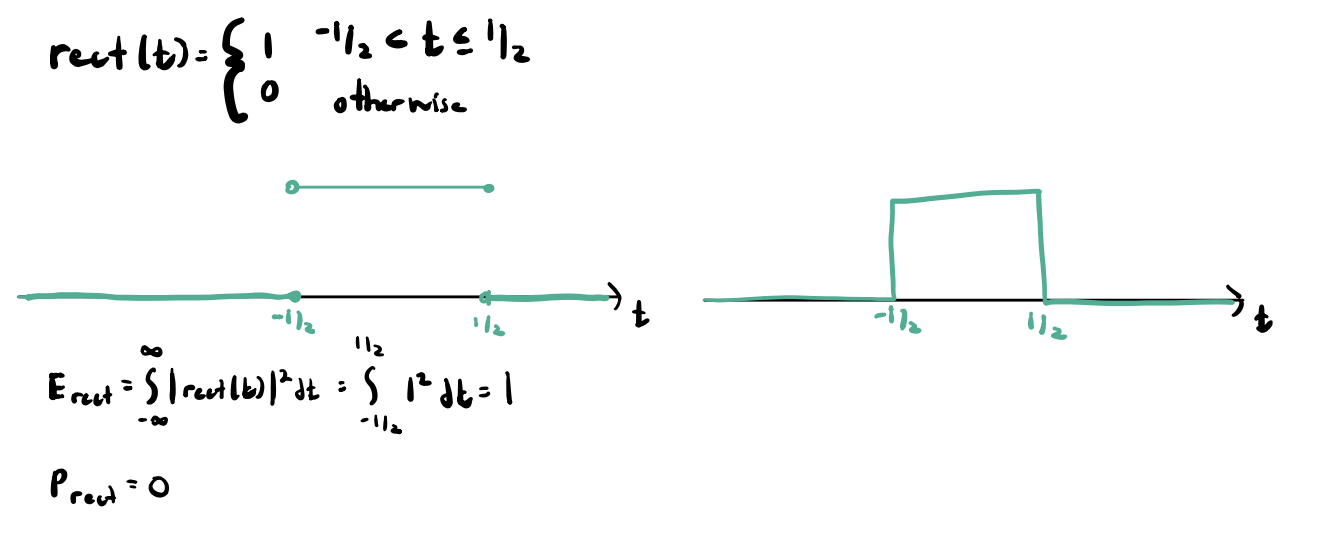 rect(t) = { 1 -1/2 < t ≤ 1/2
0 otherwise
-1/2 1/2 t
-1/2 1/2 t
E rect = ∫ ∞ -∞ |rect(t)|² dt = ∫ 1/2 -1/2 1² dt = 1
P rect = 0